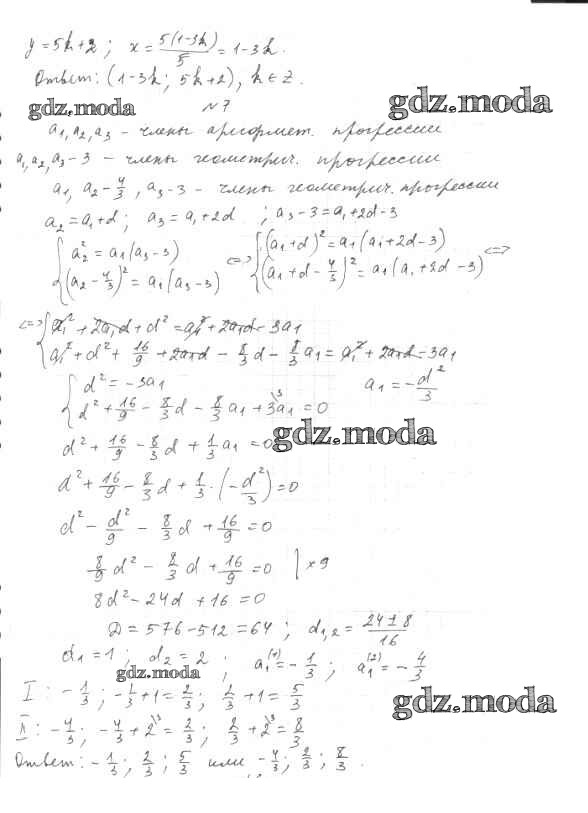 y = 5k + 2 ; x = 5(1-3k)/5 = 1-3k.
Ответ: (1-3k ; 5k+2), k ∈ Z.
gdz.moda
N7
gdz.moda
a₁, a₂, a₃ – члены арифмет. прогрессии
a₁, a₂, a₃-3 – члены геометрич. прогрессии
a₁, a₂-4/3, a₃-3 – члены геометрич. прогрессии
a₂ = a₁+d ; a₃ = a₁+2d ; a₃-3 = a₁+2d-3
{ a₂² = a₁(a₃-3) <=> { (a₁+d)² = a₁(a₁+2d-3) <=>
(a₂-4/3)² = a₁(a₃-3) (a₁+d-4/3)² = a₁(a₁+2d-3)
<=> { a₁² + 2a₁d + d² = a₁² + 2a₁d - 3a₁
a₁² + d² + 16/9 + 2a₁d - 8/3 d - 8/3 a₁ = a₁² + 2a₁d - 3a₁
{ d² = -3a₁ a₁ = -d²/3
d² + 16/9 - 8/3 d - 8/3 a₁ + 3a₁ = 0
d² + 16/9 - 8/3 d + 1/3 a₁ = 0
gdz.moda
d² + 16/9 - 8/3 d + 1/3 · (-d²/3) = 0
d² - d²/9 - 8/3 d + 16/9 = 0
8/9 d² - 8/3 d + 16/9 = 0 | × 9
8d² - 24d + 16 = 0
D = 576 - 512 = 64 ; d₁,₂ = 24±8/16
d₁ = 1 ; d₂ = 2 ; a₁⁽¹⁾ = -1/3 ; a₁⁽²⁾ = -4/3
gdz.moda
I : -1/3 ; -1/3 + 1 = 2/3 ; 2/3 + 1 = 5/3
gdz.moda
II : -4/3 ; -4/3 + 2 = 2/3 ; 2/3 + 2 = 8/3
Ответ: -1/3 ; 2/3 ; 5/3 или -4/3 ; 2/3 ; 8/3 .